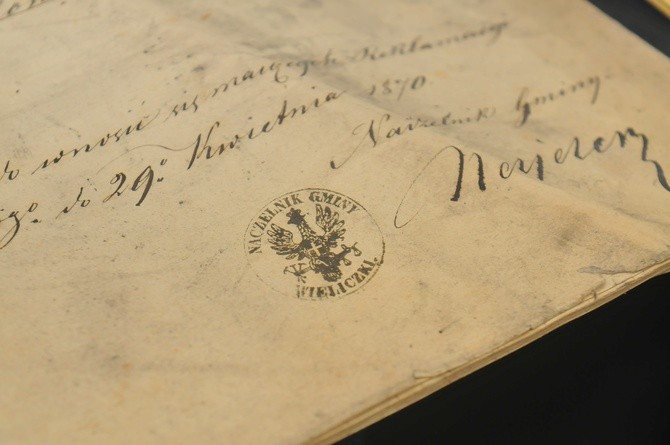 do wnosić się mających Reklamacyj
do 29º Kwietnia 1870.
Naczelnik Gminy.
NACZELNIK GMINY
WIELICZKI.